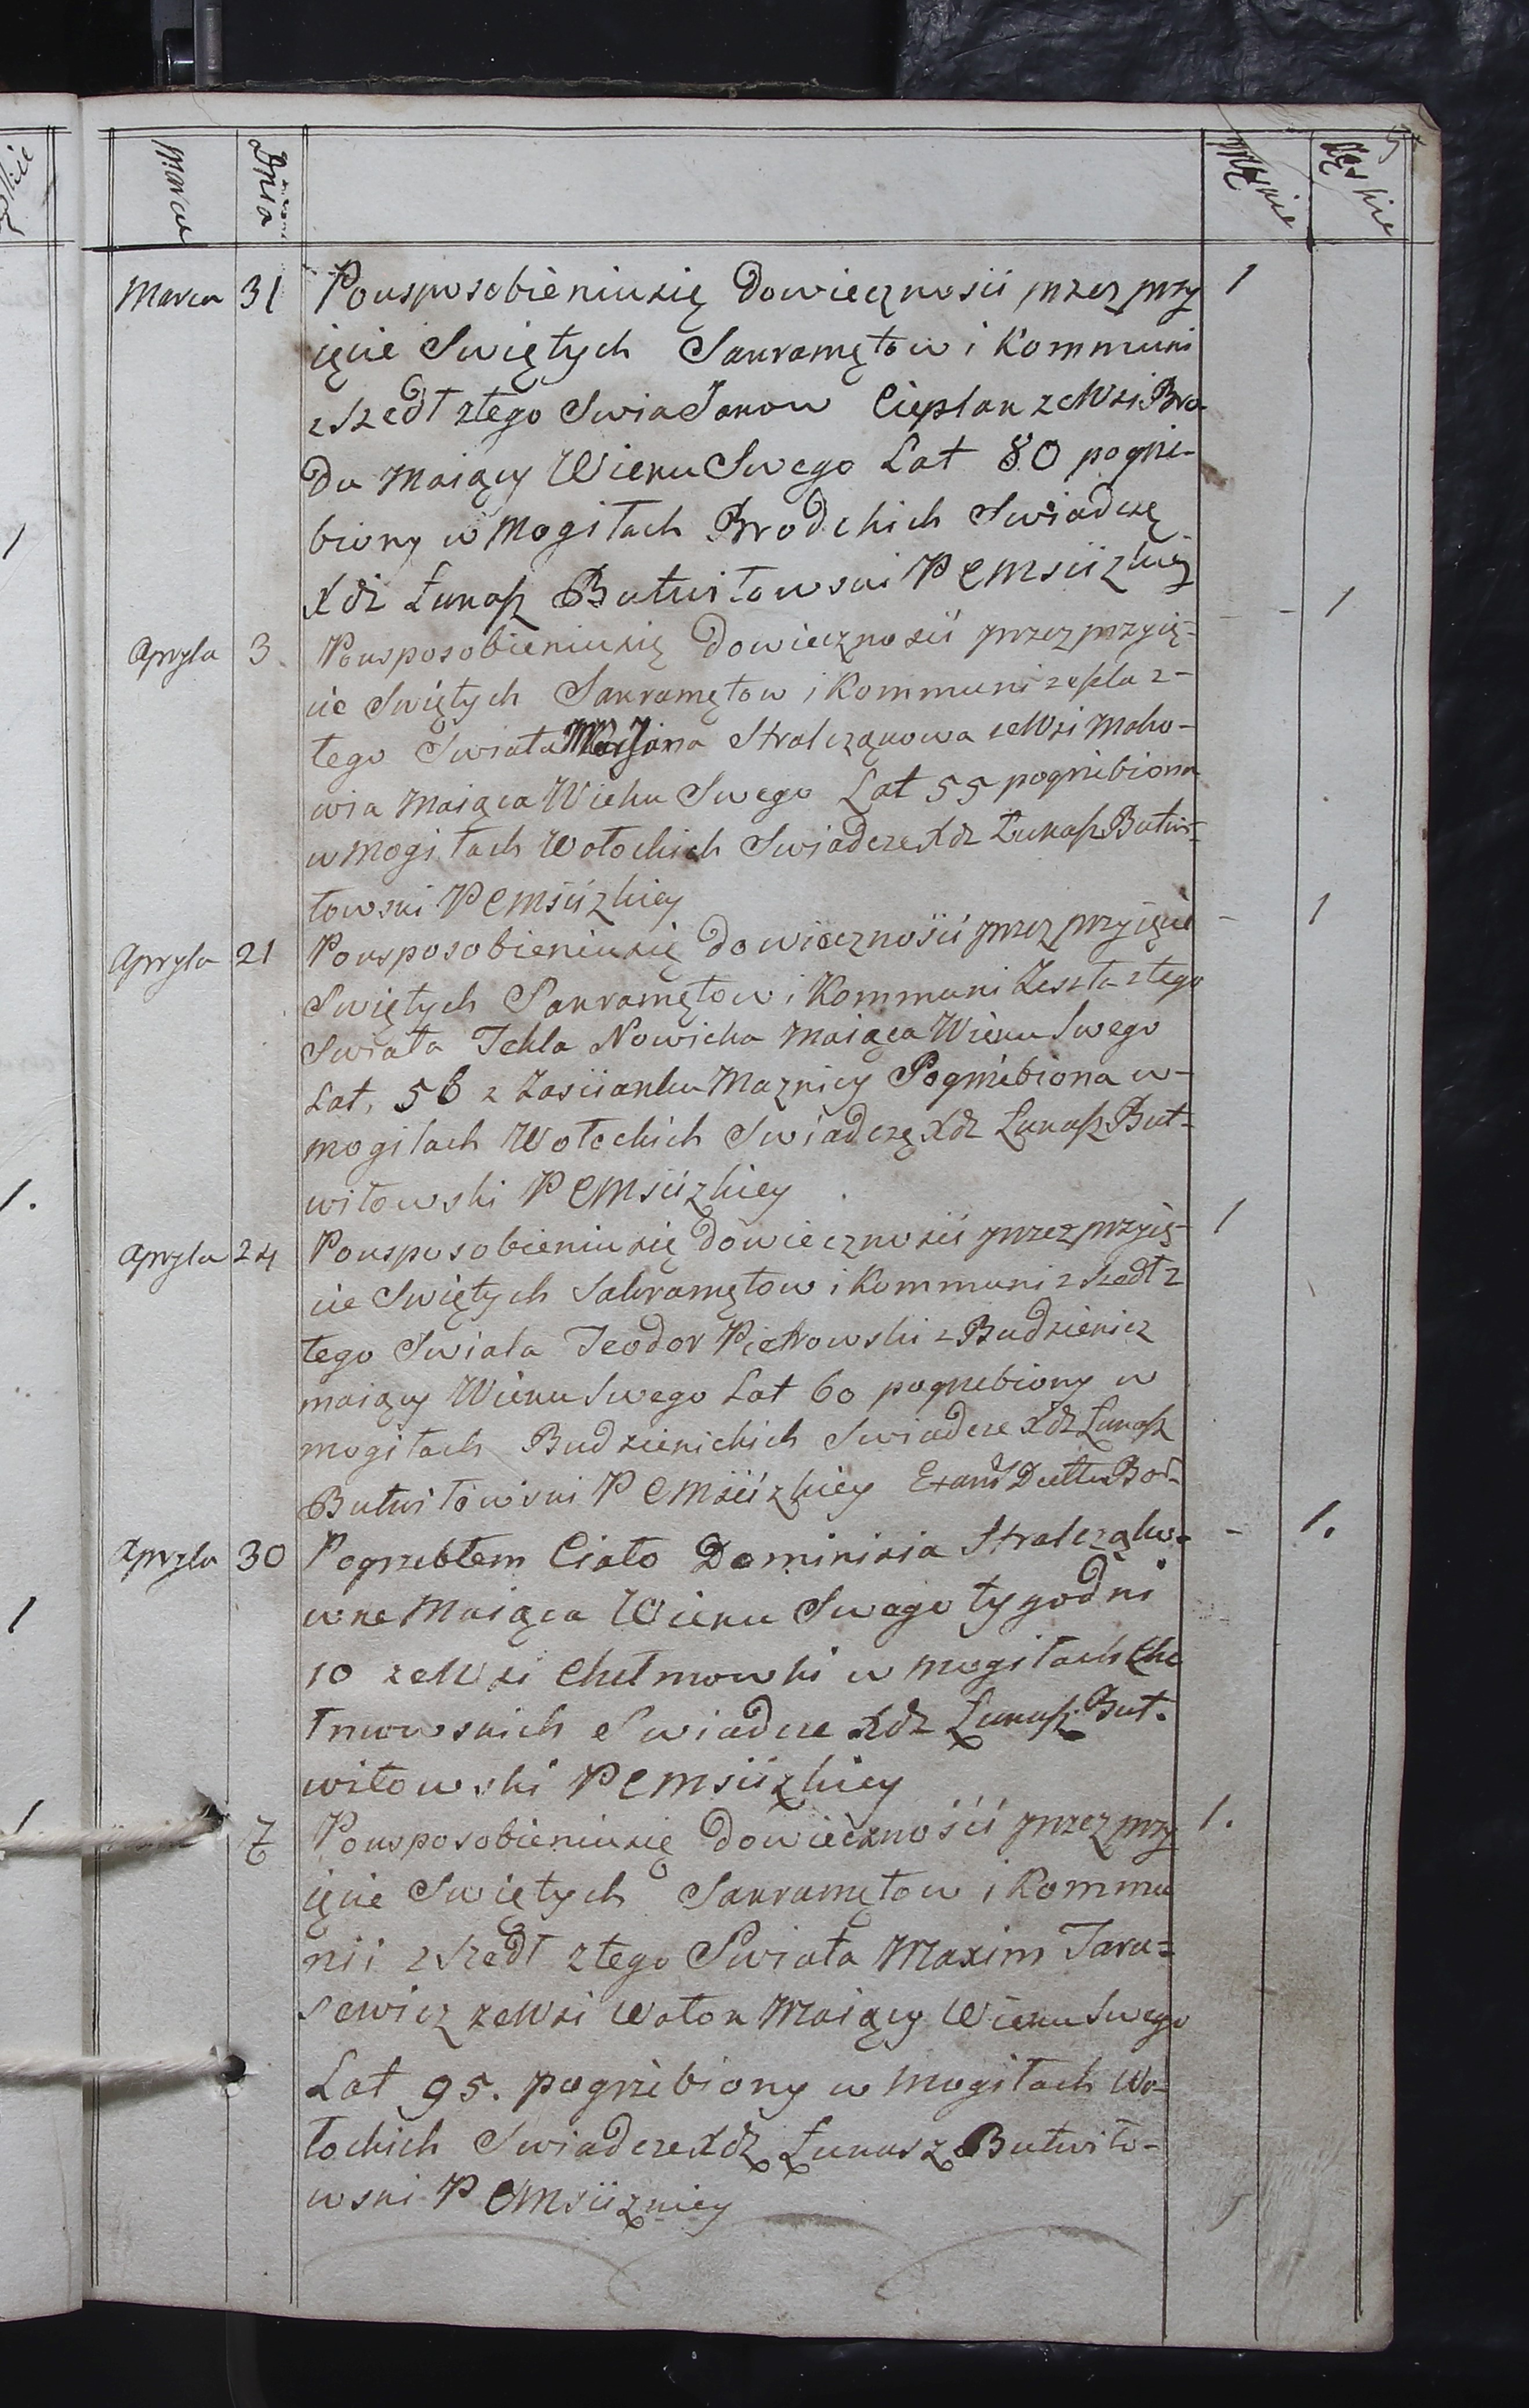 Marca Dnia Męskie Żęskie
Marca 31 Pousposobieniusię Dowiecznosii przez przy 1
ięcie Swiętych Sakramętow i Kommuni
zszedł ztego Swia Janow Cieplak zeWsi Bro-
du Maiący Wieku Swego Lat 80 pogrze-
biony w Mogiłach Brodchich Swiadczę
Xdz Łukasz Butwiłowski P C Msciizkiey
Apryla 3 Pousposobieniusię Dowiecznosii przez przyię- - 1
cie Swiętych Sakramętow i Kommuni zeszła z-
tego Swiata Marjana Stralcząkowa zeWsi Mako-
wia Maiąca Wieku Swego Lat 55 pogrzebiona
w Mogiłach Wołochich Swiadcze Xdz Łukasz Butwi-
łowski P C Msciizkiey
Apryla 21 Pousposobieniusię Dowiecznosii przez przyięcie - 1
Swiętych Sakramętow i Kommuni Zeszła ztego
Swiata Tekla Nowicka Maiąca Wieku Swego
Lat, 56 z Zasiianku Maznicy Pogrzebiona w-
mogiłach Wołochich Swiadczę Xdz Łukasz But-
wiłowski P C Msciizkiey
Apryla 24 Pousposobieniusię Dowiecznosii przez przyię- 1
cie Swiętych Sakramętow i Kommuni zszedł z
tego Swiata Teodor Piotrowski z Budzienicz
maiący Wieku Swego Lat 60 pogrzebiony w
mogiłach Budzienichich Swiadcze Xdz Łukasz
Butwiłowski P C Msciizkiey
Apryla 30 Pogrzebłem Ciało Dominikia Stralcząko- - 1.
wne Maiąca Wieku Swego tygodni
10 zeWsi Chełmowki w mogiłach Che
łmowskich Swiadcze Xdz Łukasz But-
wiłowski P C Msciizkiey
7 Pousposobieniusię Dowiecznośći przez przy 1.
ięcie Swiętych Sakramętow i Kommu
nii zszedł ztego Swiata Maxim Tara-
sewicz zeWsi Wołok Maiący Wieku Swego
Lat 95. pogrzebiony w Mogiłach Wo-
łochich Swiadcze Xdz Łukasz Butwiło-
wski P C Msciizkiey